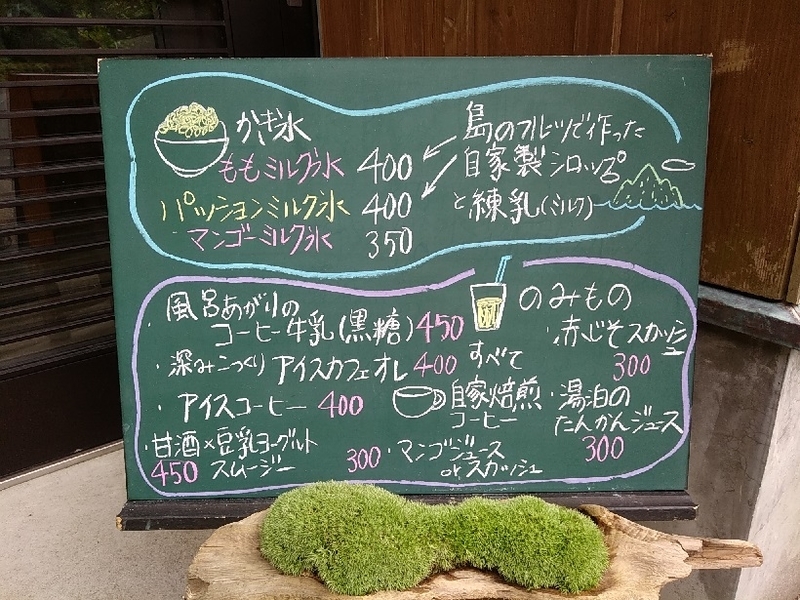 かき氷
ももミルク氷 400
パッションミルク氷 400
マンゴーミルク氷 350
島のフルーツで作った
自家製シロップ
と練乳(ミルク)
のみもの
・風呂あがりの
コーヒー牛乳(黒糖) 450
・深みこっくり アイスカフェオレ 400
・アイスコーヒー 400
すべて
自家焙煎
コーヒー
・甘酒×豆乳ヨーグルト
スムージー 450
・マンゴジュース
orスカッシュ 300
・赤じそスカッシュ
300
・湯泊の
たんかんジュース
300